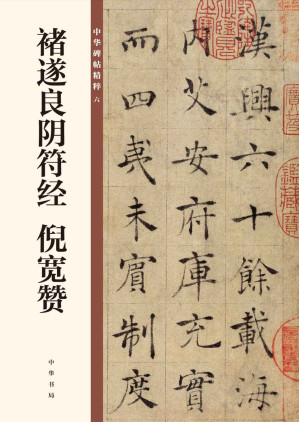 中华碑帖精粹 六
褚遂良阴符经 倪宽赞
中华书局
漢興六十餘載海
内艾安府庫充實
而四夷未賓制度